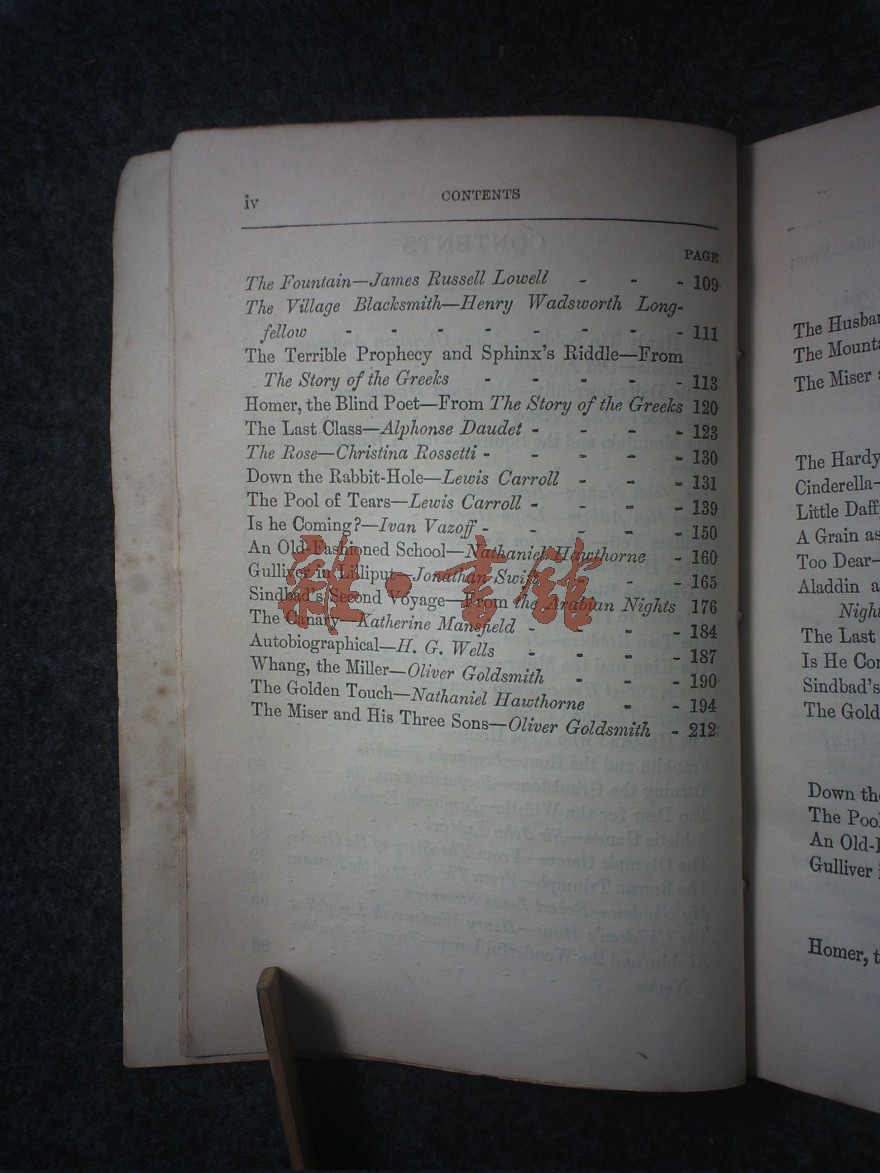 iv CONTENTS
PAGE
The Fountain—James Russell Lowell - - - 109
The Village Blacksmith—Henry Wadsworth Long-
fellow - - - - - - - - 111
The Terrible Prophecy and Sphinx's Riddle—From
The Story of the Greeks - - - - - 113
Homer, the Blind Poet—From The Story of the Greeks 120
The Last Class—Alphonse Daudet - - - - 123
The Rose—Christina Rossetti - - - - - 130
Down the Rabbit-Hole—Lewis Carroll - - - 131
The Pool of Tears—Lewis Carroll - - - - 139
Is he Coming?—Ivan Vazoff - - - - - 150
An Old-Fashioned School—Nathaniel Hawthorne - 160
Gulliver in Lilliput—Jonathan Swift - - - 165
Sindbad's Second Voyage—From the Arabian Nights 176
The Canary—Katherine Mansfield - - - - 184
Autobiographical—H. G. Wells - - - - 187
Whang, the Miller—Oliver Goldsmith - - - 190
The Golden Touch—Nathaniel Hawthorne - - 194
The Miser and His Three Sons—Oliver Goldsmith - 212
雜·書館
The
The Mount
The Miser
The Hardy
Cinderella—
Little Daff
A Grain as
Too Dear—
Aladdin a
Night
The Last
Is He Co
Sindbad's
The Gold
Down the
The Poo
An Old-
Gulliver
Homer, t